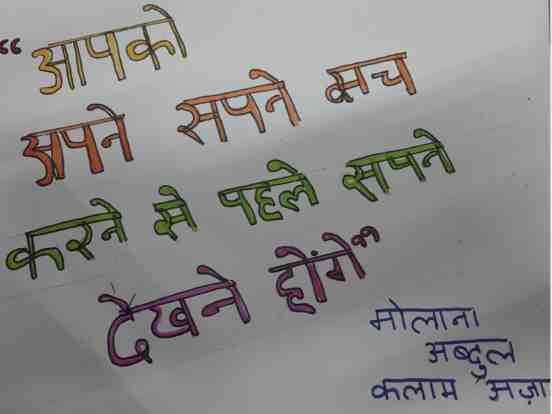 “आपको
अपने सपने सच
करने से पहले सपने
देखने होंगे”
मोलाना
अब्दुल
कलाम अज़ा